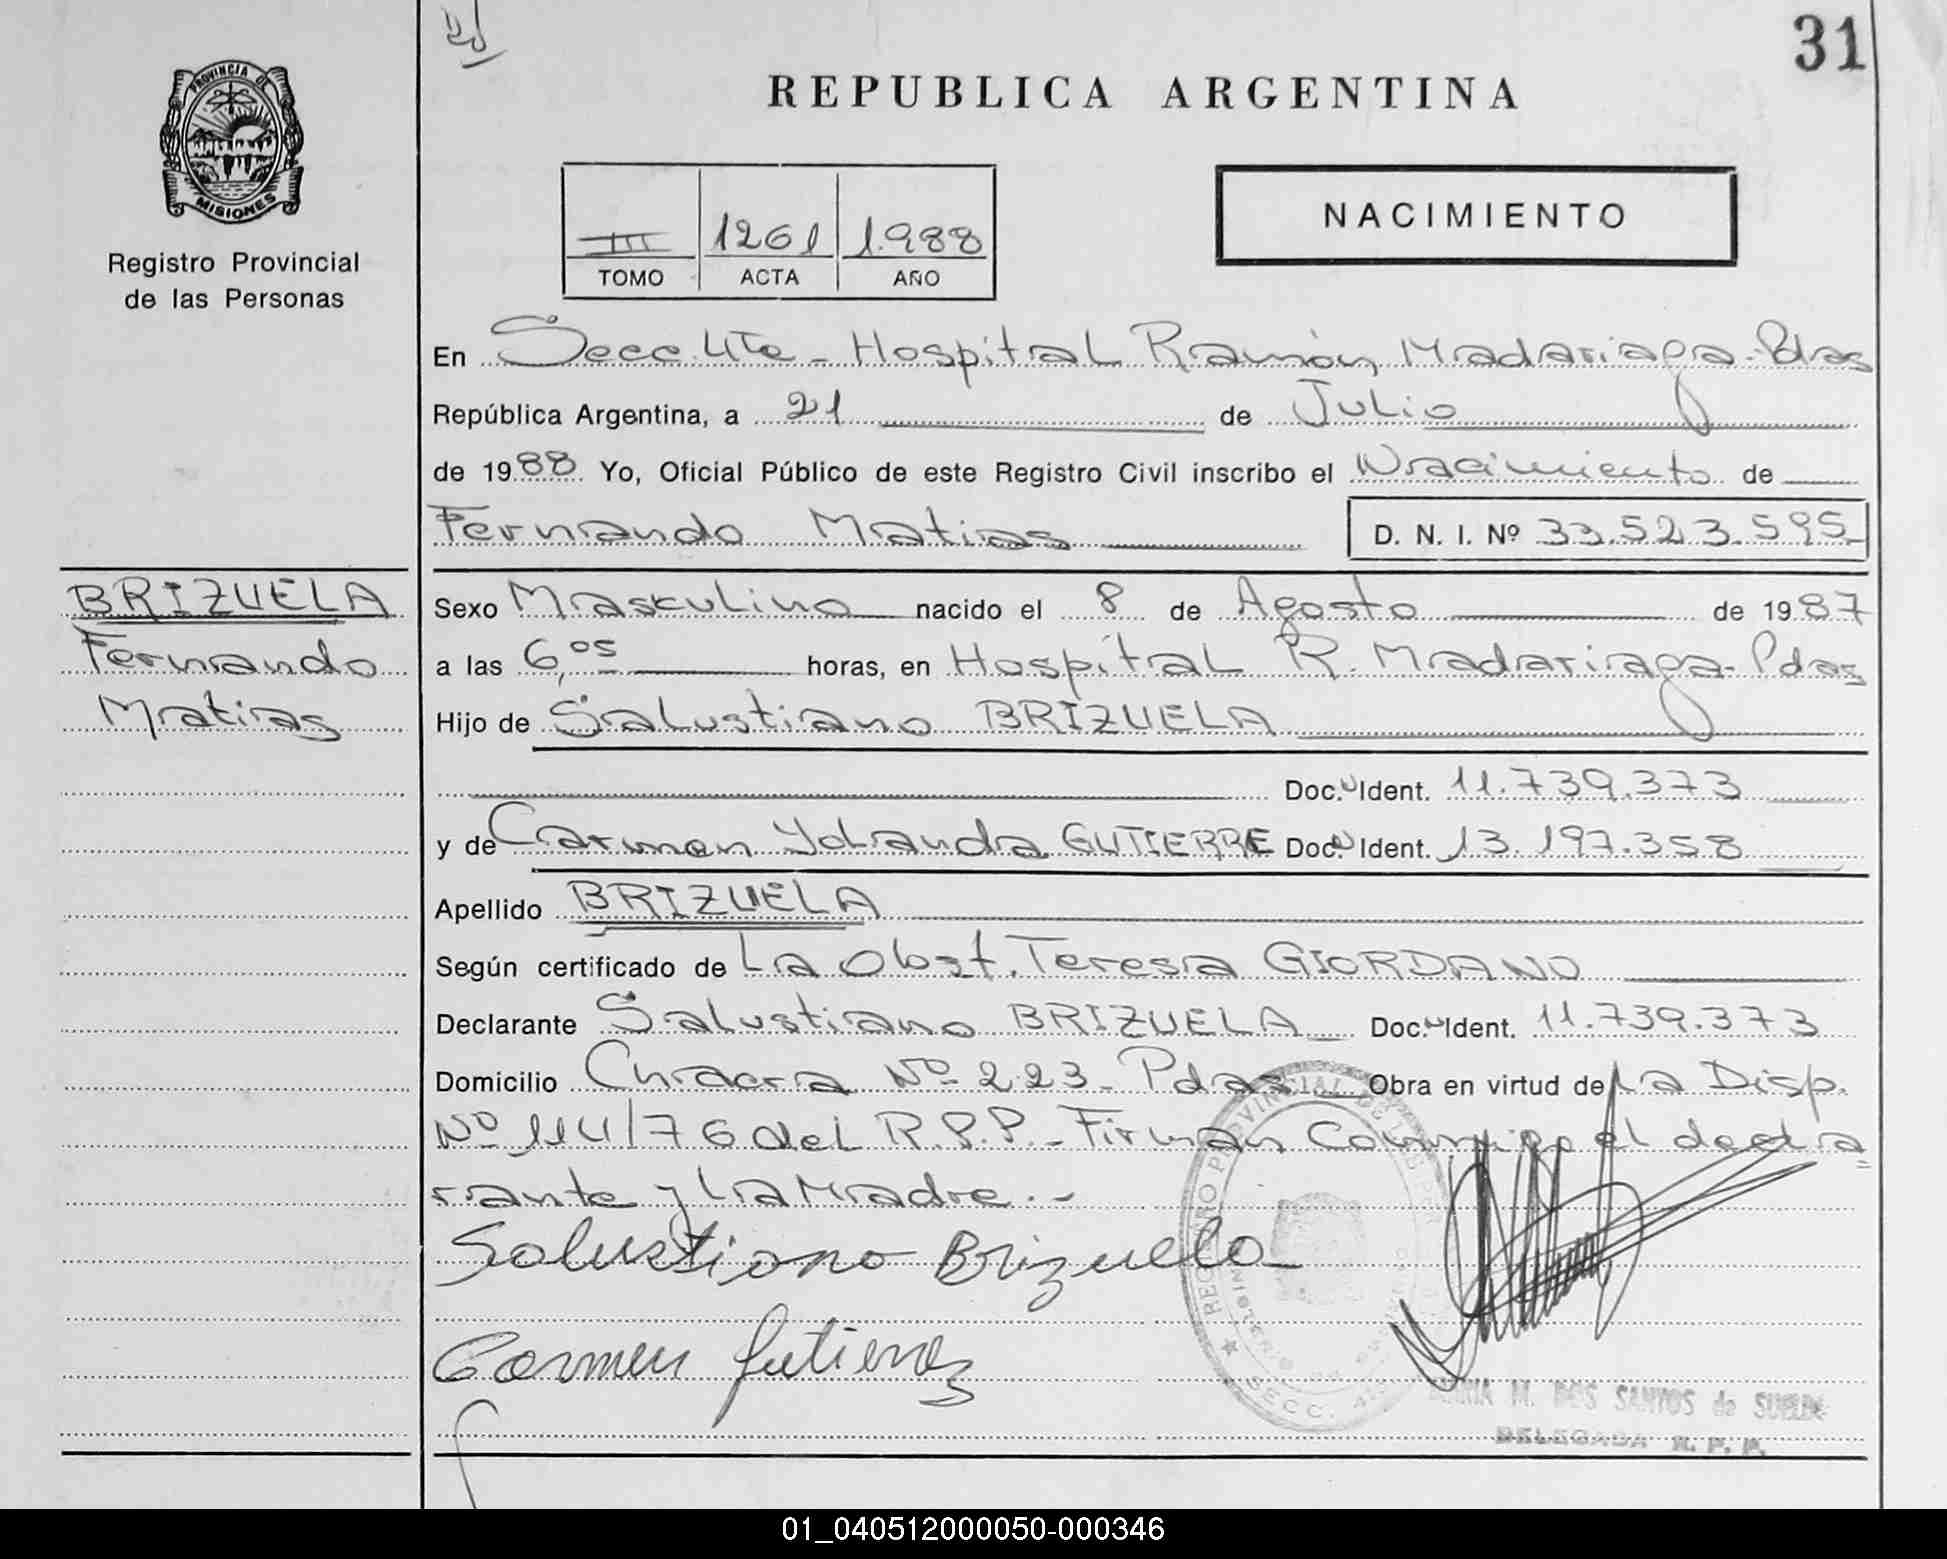 31
REPUBLICA ARGENTINA
PROVINCIA DE
MISIONES
Registro Provincial
de las Personas
NACIMIENTO
III 1261 1.988
TOMO ACTA AÑO
En Secc. 4ta - Hospital Ramón Madariaga - Pdas
República Argentina, a 21 de Julio
de 1988 Yo, Oficial Público de este Registro Civil inscribo el Nacimiento de
Fernando Matias D. N. I. Nº 33.523.595
BRIZUELA
Fernando
Matias
Sexo Masculino nacido el 8 de Agosto de 1987
a las 6,05 horas, en Hospital R. Madariaga - Pdas
Hijo de Salustiano BRIZUELA
Doc. Ident. 11.739.373
y de Carmen Yolanda GUTIERRE Doc. Ident. 13.197.358
Apellido BRIZUELA
Según certificado de La Obst. Teresa GIORDANO
Declarante Salustiano BRIZUELA Doc. Ident. 11.739.373
Domicilio Chacra Nº 223 - Pdas Obra en virtud de La Disp.
Nº 114/76 del R.P.P. - Firman Conmigo el decla
rante y La Madre.-
Salustiano Brizuela
Carmen Gutierrez
MARIA M. DOS SANTOS de
DELEGADA R. P. P.
01_040512000050-000346